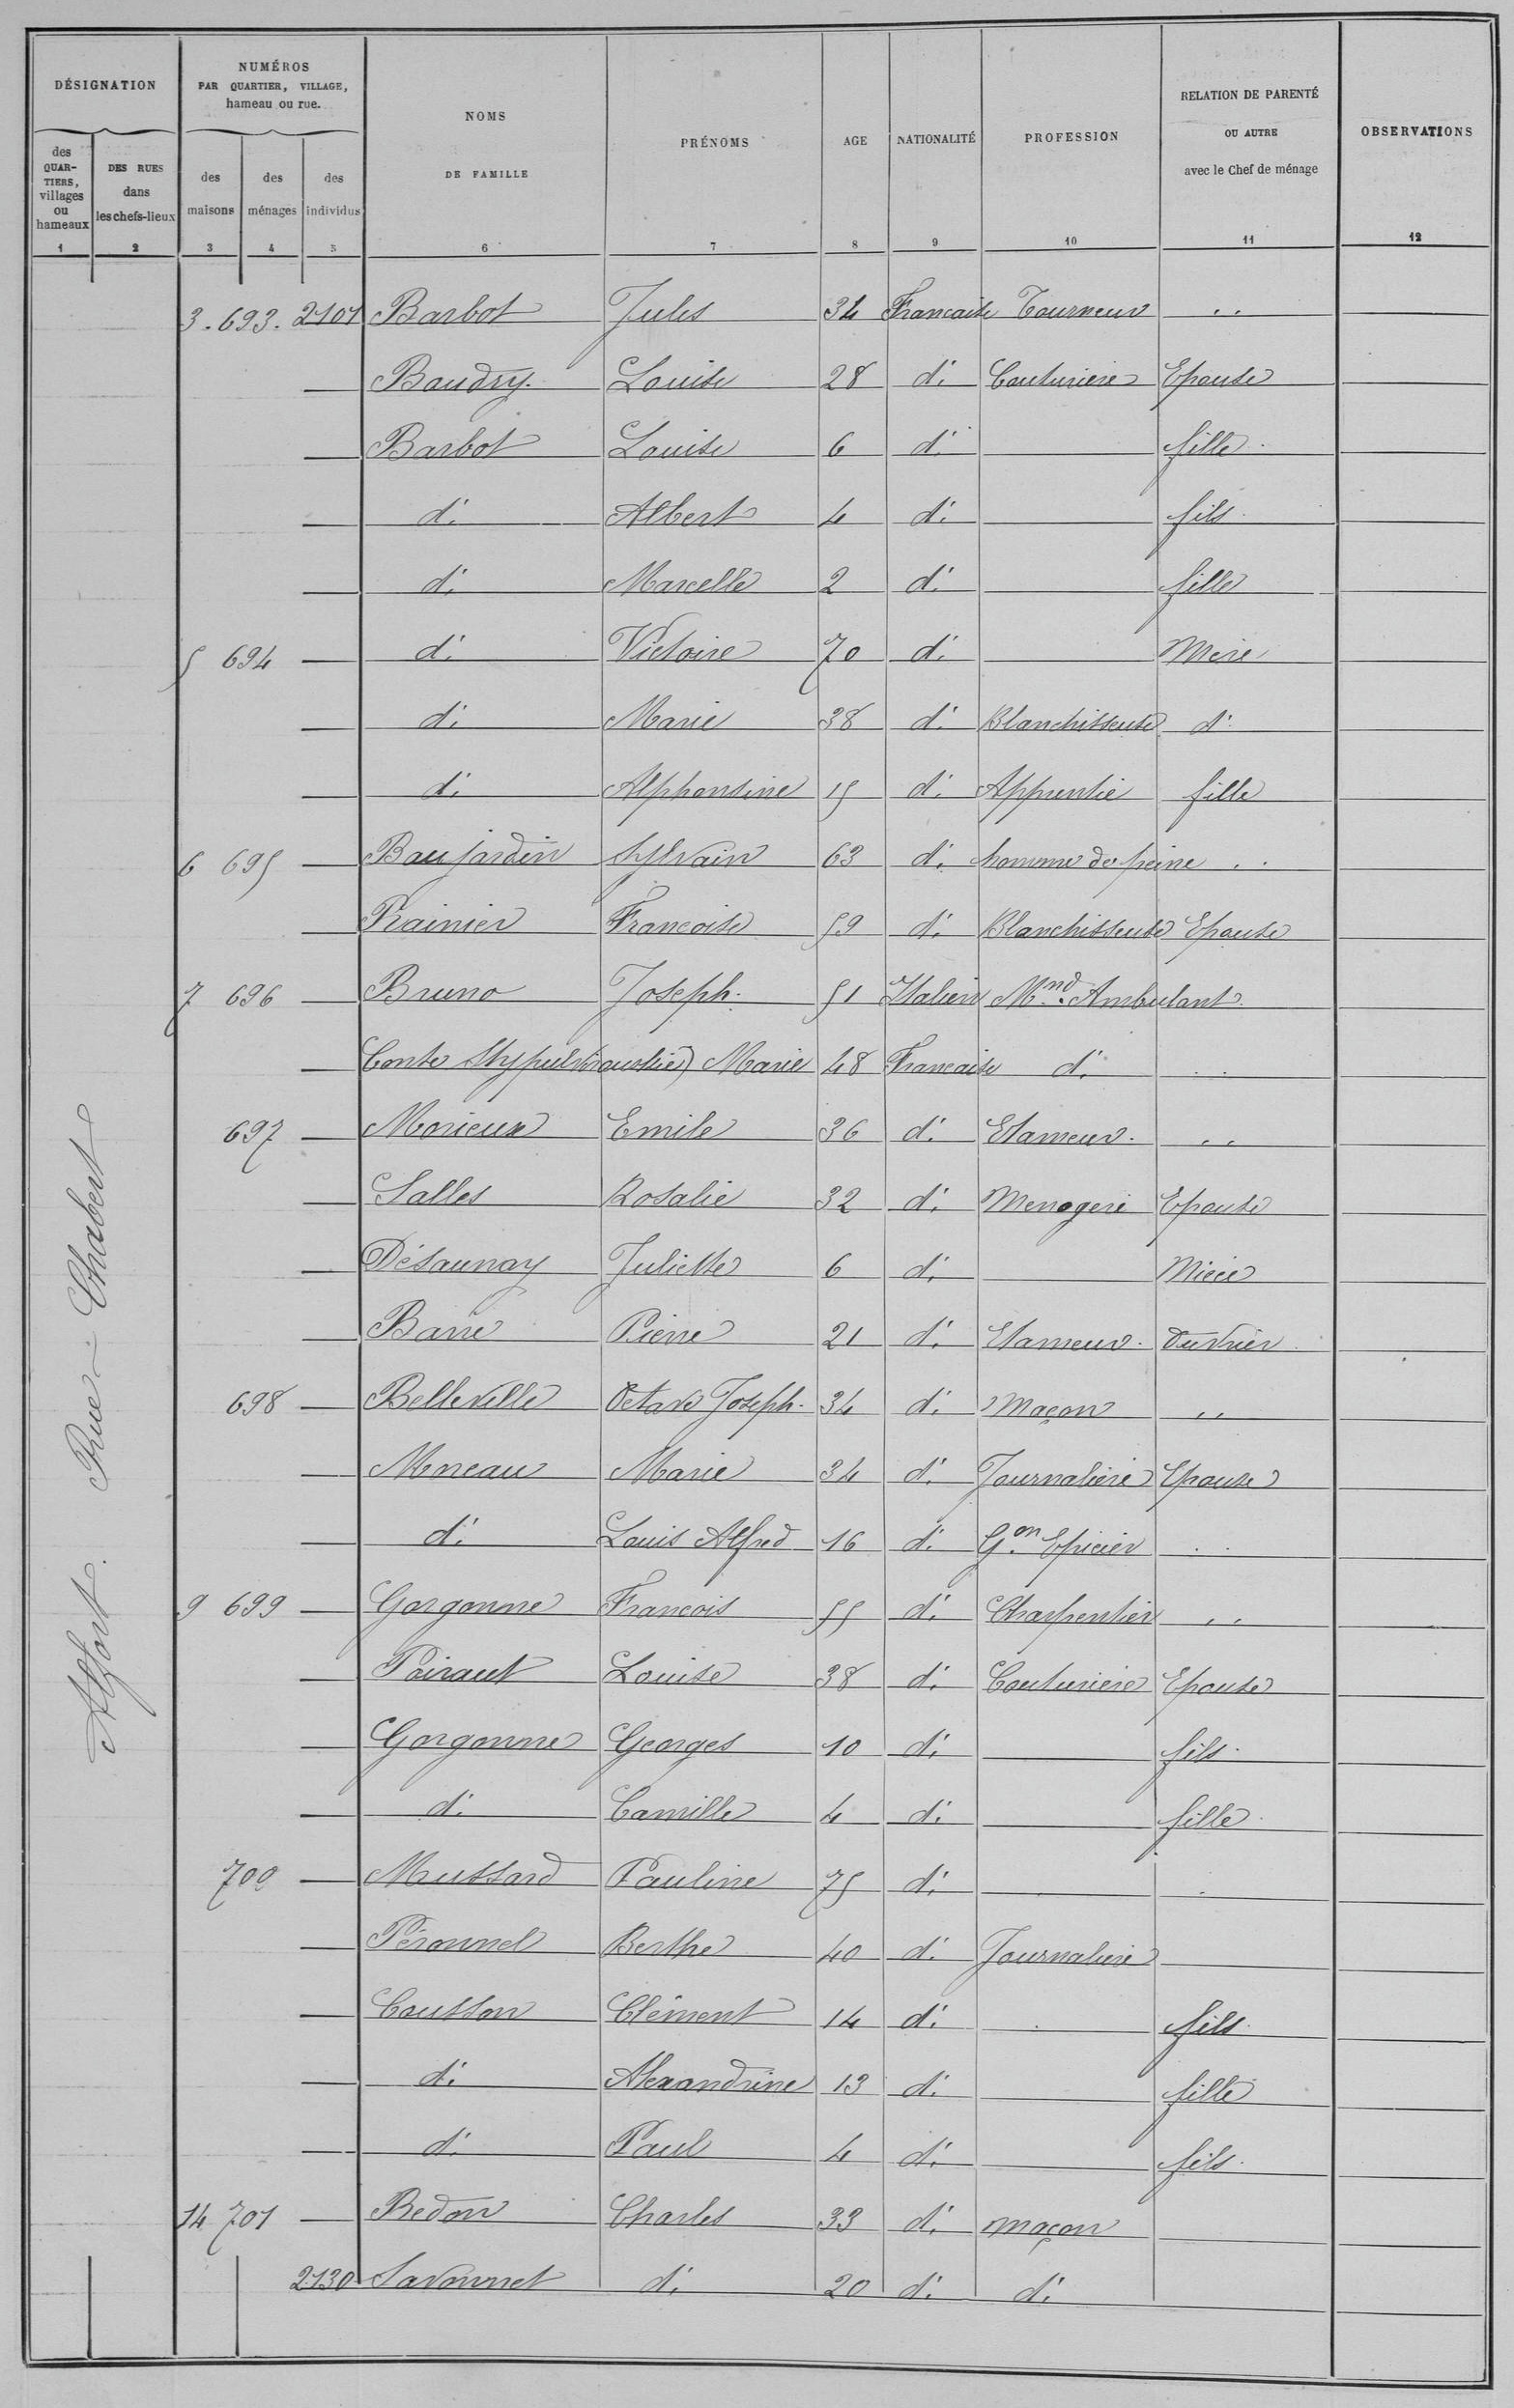 DÉSIGNATION
NUMÉROS
PAR QUARTIER, VILLAGE,
hameau ou rue.
NOMS
DE FAMILLE
PRÉNOMS
AGE
NATIONALITÉ
PROFESSION
RELATION DE PARENTÉ
OU AUTRE
avec le Chef de ménage
OBSERVATIONS
des
QUAR-
TIERS,
villages
ou
hameaux
DES RUES
dans
les chefs-lieux
des
maisons
des
ménages
des
individus
1 2 3 4 5 6 7 8 9 10 11 12
Alfort. Rue Chabert
3. 693. 2101 Barbot Jules 34 Francaise Tourneur ..
— Baudry. Louise 28 d: Couturiere Epouse
— Barbot Louise 6 d: fille.
— d: Albert 4 d: fils.
— d: Marcelle 2 d: fille
5 694 — d: Victoire 70 d: Mère
— d: Marie 38 d: Blanchisseuse d:
— d: Alphonsine 15 d: Apprentie fille
6 695 — Baujardin Sylvain 63 d: homme de peine ..
— Rainier Francoise 59 d: Blanchisseuse Epouse
7 696 — Bruno Joseph. 51 Italien Mnd. Ambulant.
— Conte Marie 48 Francaise d: ..
697 — Morieux Emile 36 d: Etameur. ..
— Salles Rosalie 32 d: Menagere Epouse
— Désaunay Juliette 6 d: Niece
— Barre Pierre 21 d: Etameur. Ouvrier
698 — Belleville Octave Joseph. 34 d: Maçon ..
— Moreau Marie 34 d: Journaliere Epouse
— d: Louis Alfred 16 d: Gon. Epicier ..
9 699 — Gorgonne Francois 55 d: Charpentier ..
— Poiraut Louise 38 d: Couturiere Epouse
— Gorgonne Georges 10 d: fils.
— d: Camille 4 d: fille.
700 — Mussard Pauline 75 d:
— Péronnel Berthe 40 d: Journaliere
— Cousson Clément 14 d: fils.
— d: Alexandrine 13 d: fille
— d: Paul 4 d: fils.
14 701 — Bedon Charles 33 d: maçon
2130 Savonnet d: 20 d: d: